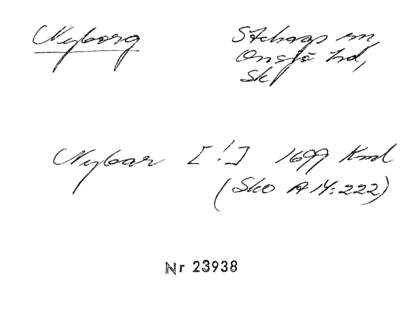 Nyborg
Stehags sn,
Onsjö hd,
Sk
Nybar [!] 1699 Kml
(Sko A IV:222)
Nr 23938